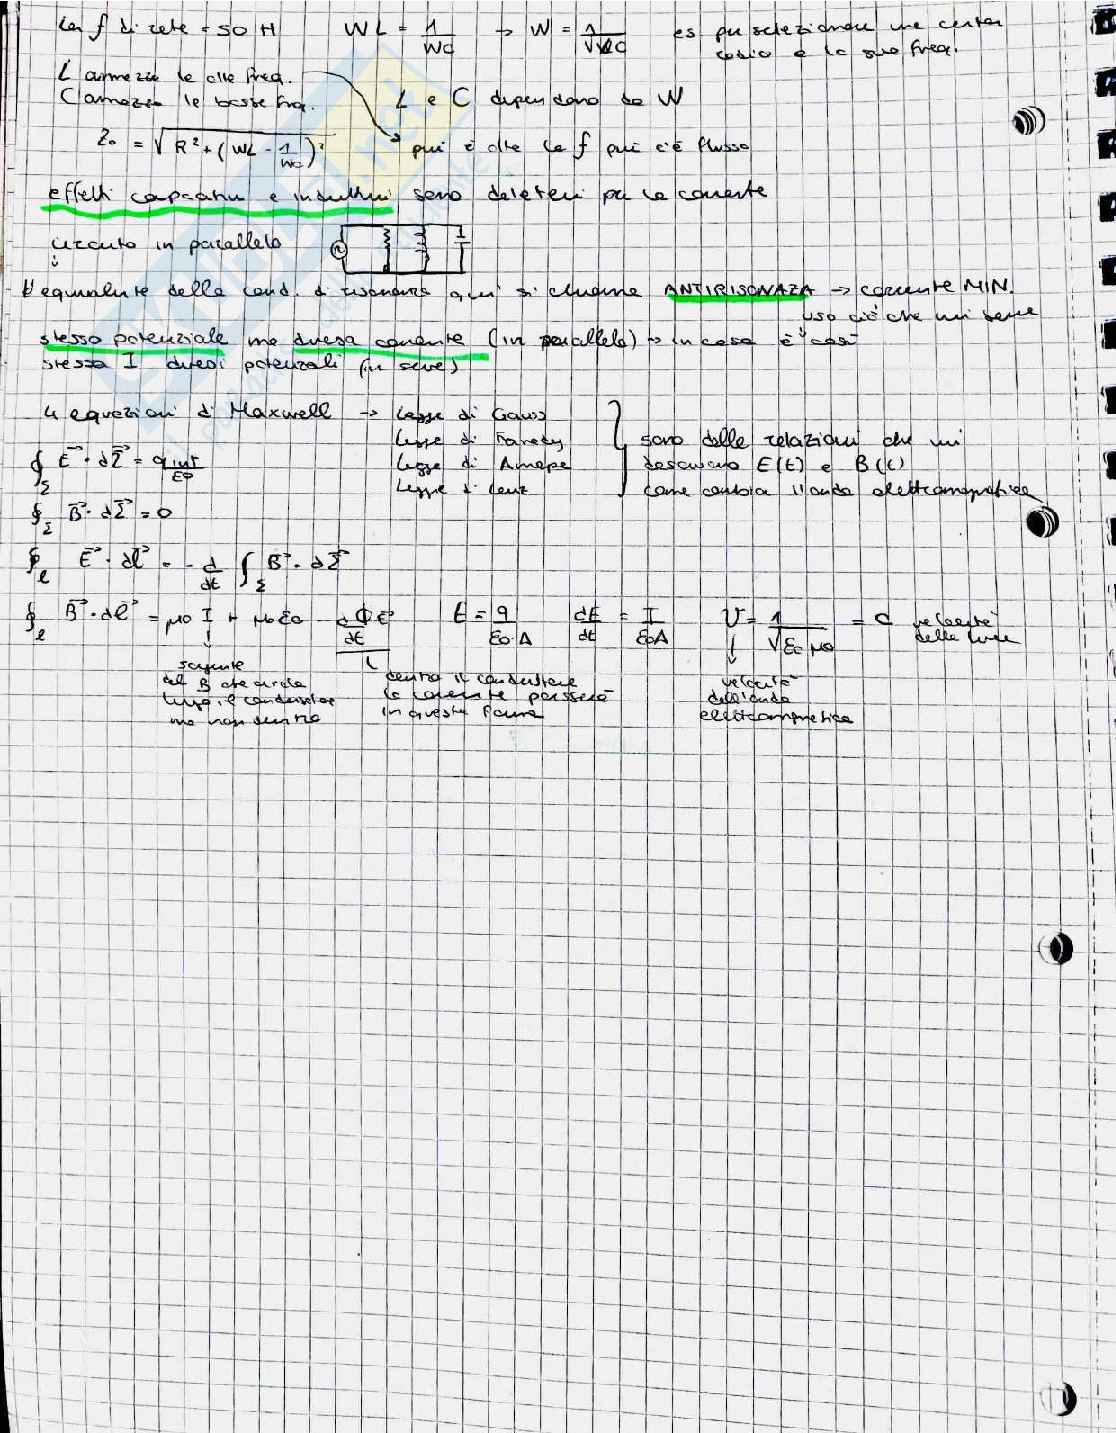 La f di rete = 50 H    WL = 1/WC → W = 1/√LC    es per selezionare una certa
radio e la sua freq.
L ammezza le alte freq.
C ammezza le basse freq.    L e C dipendono da W
Z₀ = √R² + (WL - 1/WC)²    più è alta la f più c'è flusso
effetti capacitivi e induttivi sono deleteri per la corrente
circuito in parallelo
L'equivalente della cond. di risonanza qui si chiama ANTIRISONAZA → corrente MIN.
uso ciò che mi serve
stesso potenziale ma diversa corrente (in parallelo) → in casa è così
stessa I diversi potenziali (in serie)
4 equazioni di Maxwell → Legge di Gauss
Legge di Faraday    sono delle relazioni che mi
∮Σ E→ · dΣ→ = q int/ε0    Legge di Ampere    descrivono E(t) e B(t)
Legge di Lenz    come cambia l'onda elettromagnetica
∮Σ B→ · dΣ→ = 0
∮l E→ · dl→ = - d/dt ∫Σ B→ · dΣ→
∮l B→ · dl→ = μ0 I + μ0 ε0 dΦE→/dt    E = q/ε0·A    dE/dt = I/ε0A    V = 1/√ε0 μ0 = C velocità
della luce
sorgente
del B che circola
lungo il conduttore
ma non dentro
dentro il condensatore
la corrente passerà
in questa forma
velocità
dell'onda
elettromagnetica